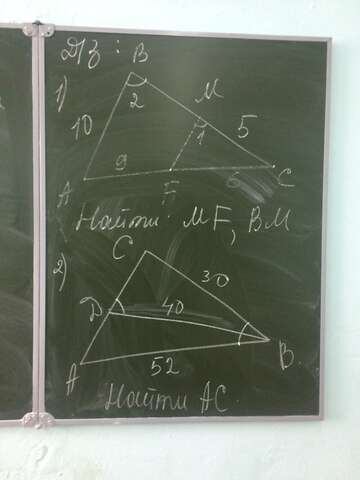 ДЗ:
1)
B
2
M
10
1
5
9
6
A
F
C
Найти MF, BM
2)
C
30
D
40
B
A
52
Найти AC.